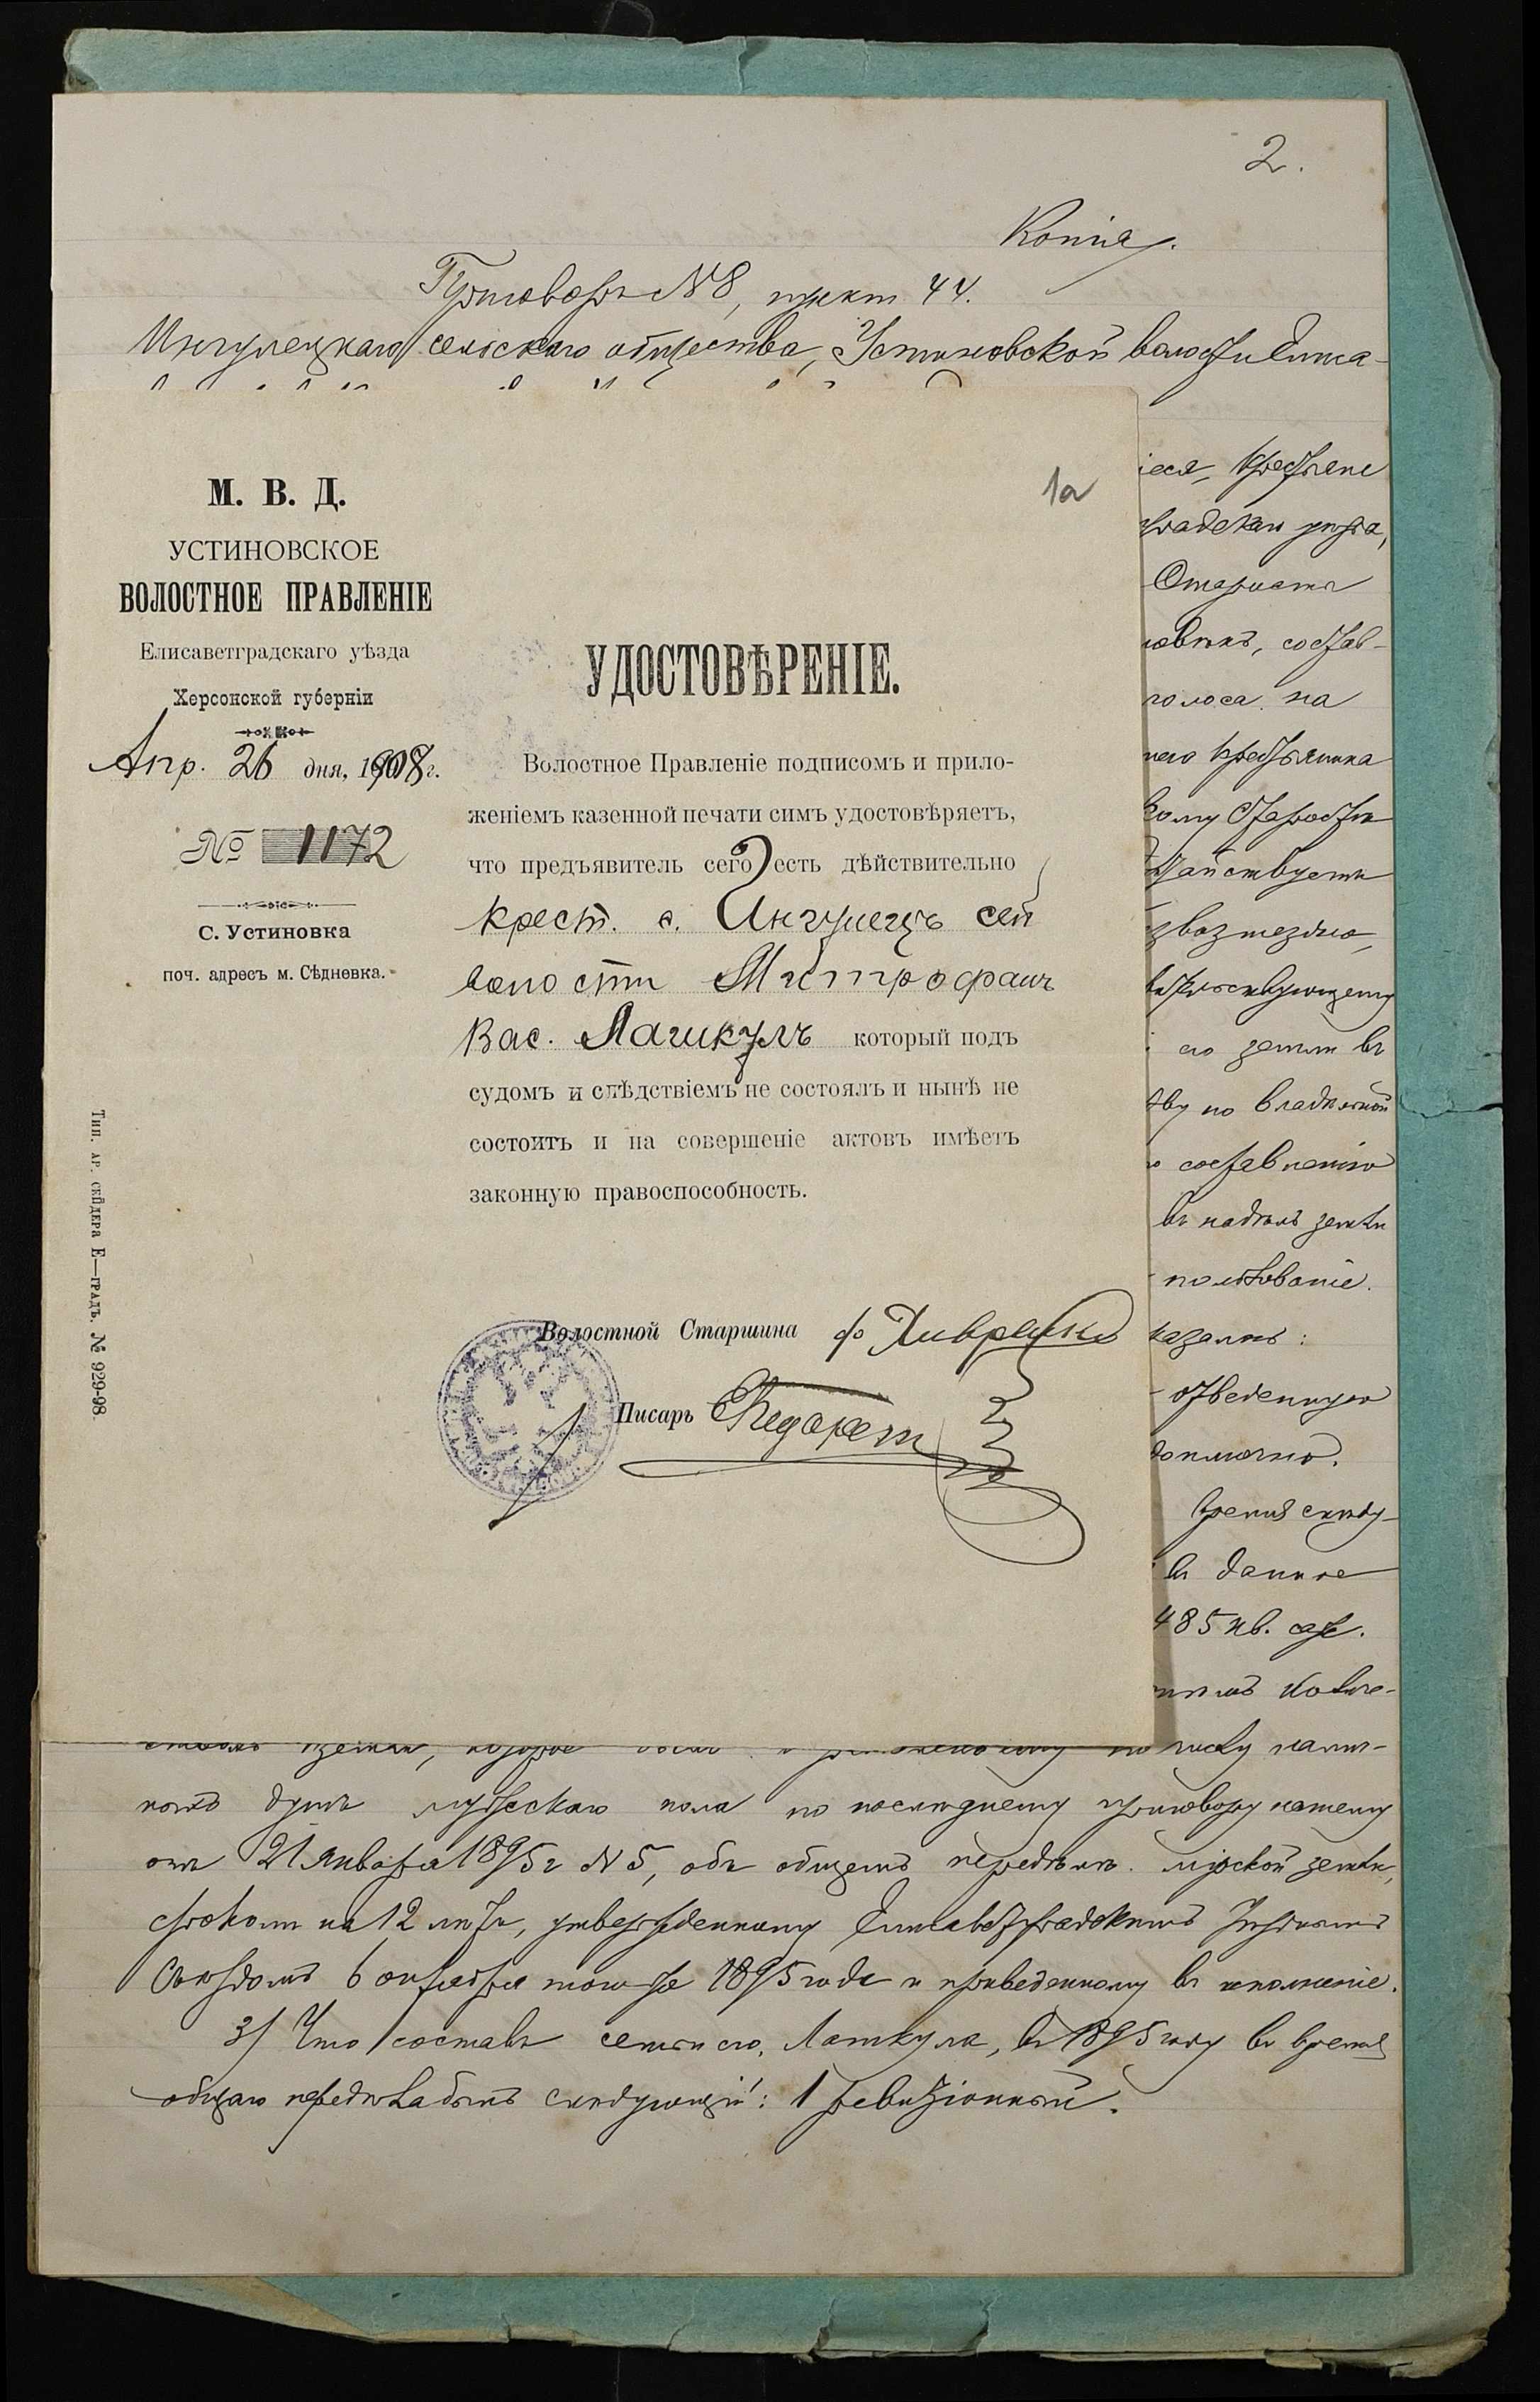 2.
Копія.
Приговоръ №8, пункт 44.
Ингулецкаго сельскаго общества, Устиновской волости Елиса-
1а
М. В. Д.
УСТИНОВСКОЕ
ВОЛОСТНОЕ ПРАВЛЕНІЕ
Елисаветградскаго уѣзда
Херсонской губерніи
Апр. 26 дня, 1908 г.
№ 1172
С. Устиновка
поч. адресъ м. Сѣдневка.
Тип. ар. Е—градъ. № 929-98.
УДОСТОВѢРЕНІЕ.
Волостное Правленіе подписомъ и прило-
женіемъ казенной печати симъ удостовѣряетъ,
что предъявитель сего есть дѣйствительно
крест. с. Ингулецъ сей
волости Митрофанъ
Вас. Лашкулъ который подъ
судомъ и слѣдствіемъ не состоялъ и нынѣ не
состоитъ и на совершеніе актовъ имѣетъ
законную правоспособность.
Волостной Старшина
Писарь
крестьяне
градскаго уѣзда,
Старосты
состав-
голоса на
крестьянина
Старостѣ
его земли въ
по владѣнной
составленію
въ надѣлъ земли
пользованіе.
казали:
отведенную
время слѣду-
въ данное
485 кв. саж.
ныхъ душъ мужескаго пола по послѣднему приговору нашему
отъ 21 января 1895 г №5, объ общемъ передѣлѣ мірской земли,
срокомъ на 12 лѣтъ, утвержденному Елисаветградскимъ Уѣзднымъ
Съѣздомъ 6 октября того же 1895 года и приведенному въ исполненіе.
3/ Что составъ семьи его, Лашкула, въ 1895 году въ время
общаго передѣла былъ слѣдующій: 1 ревизіонный.